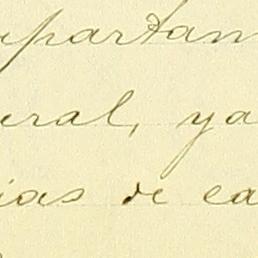 upartam
eral, ya
ias de ca